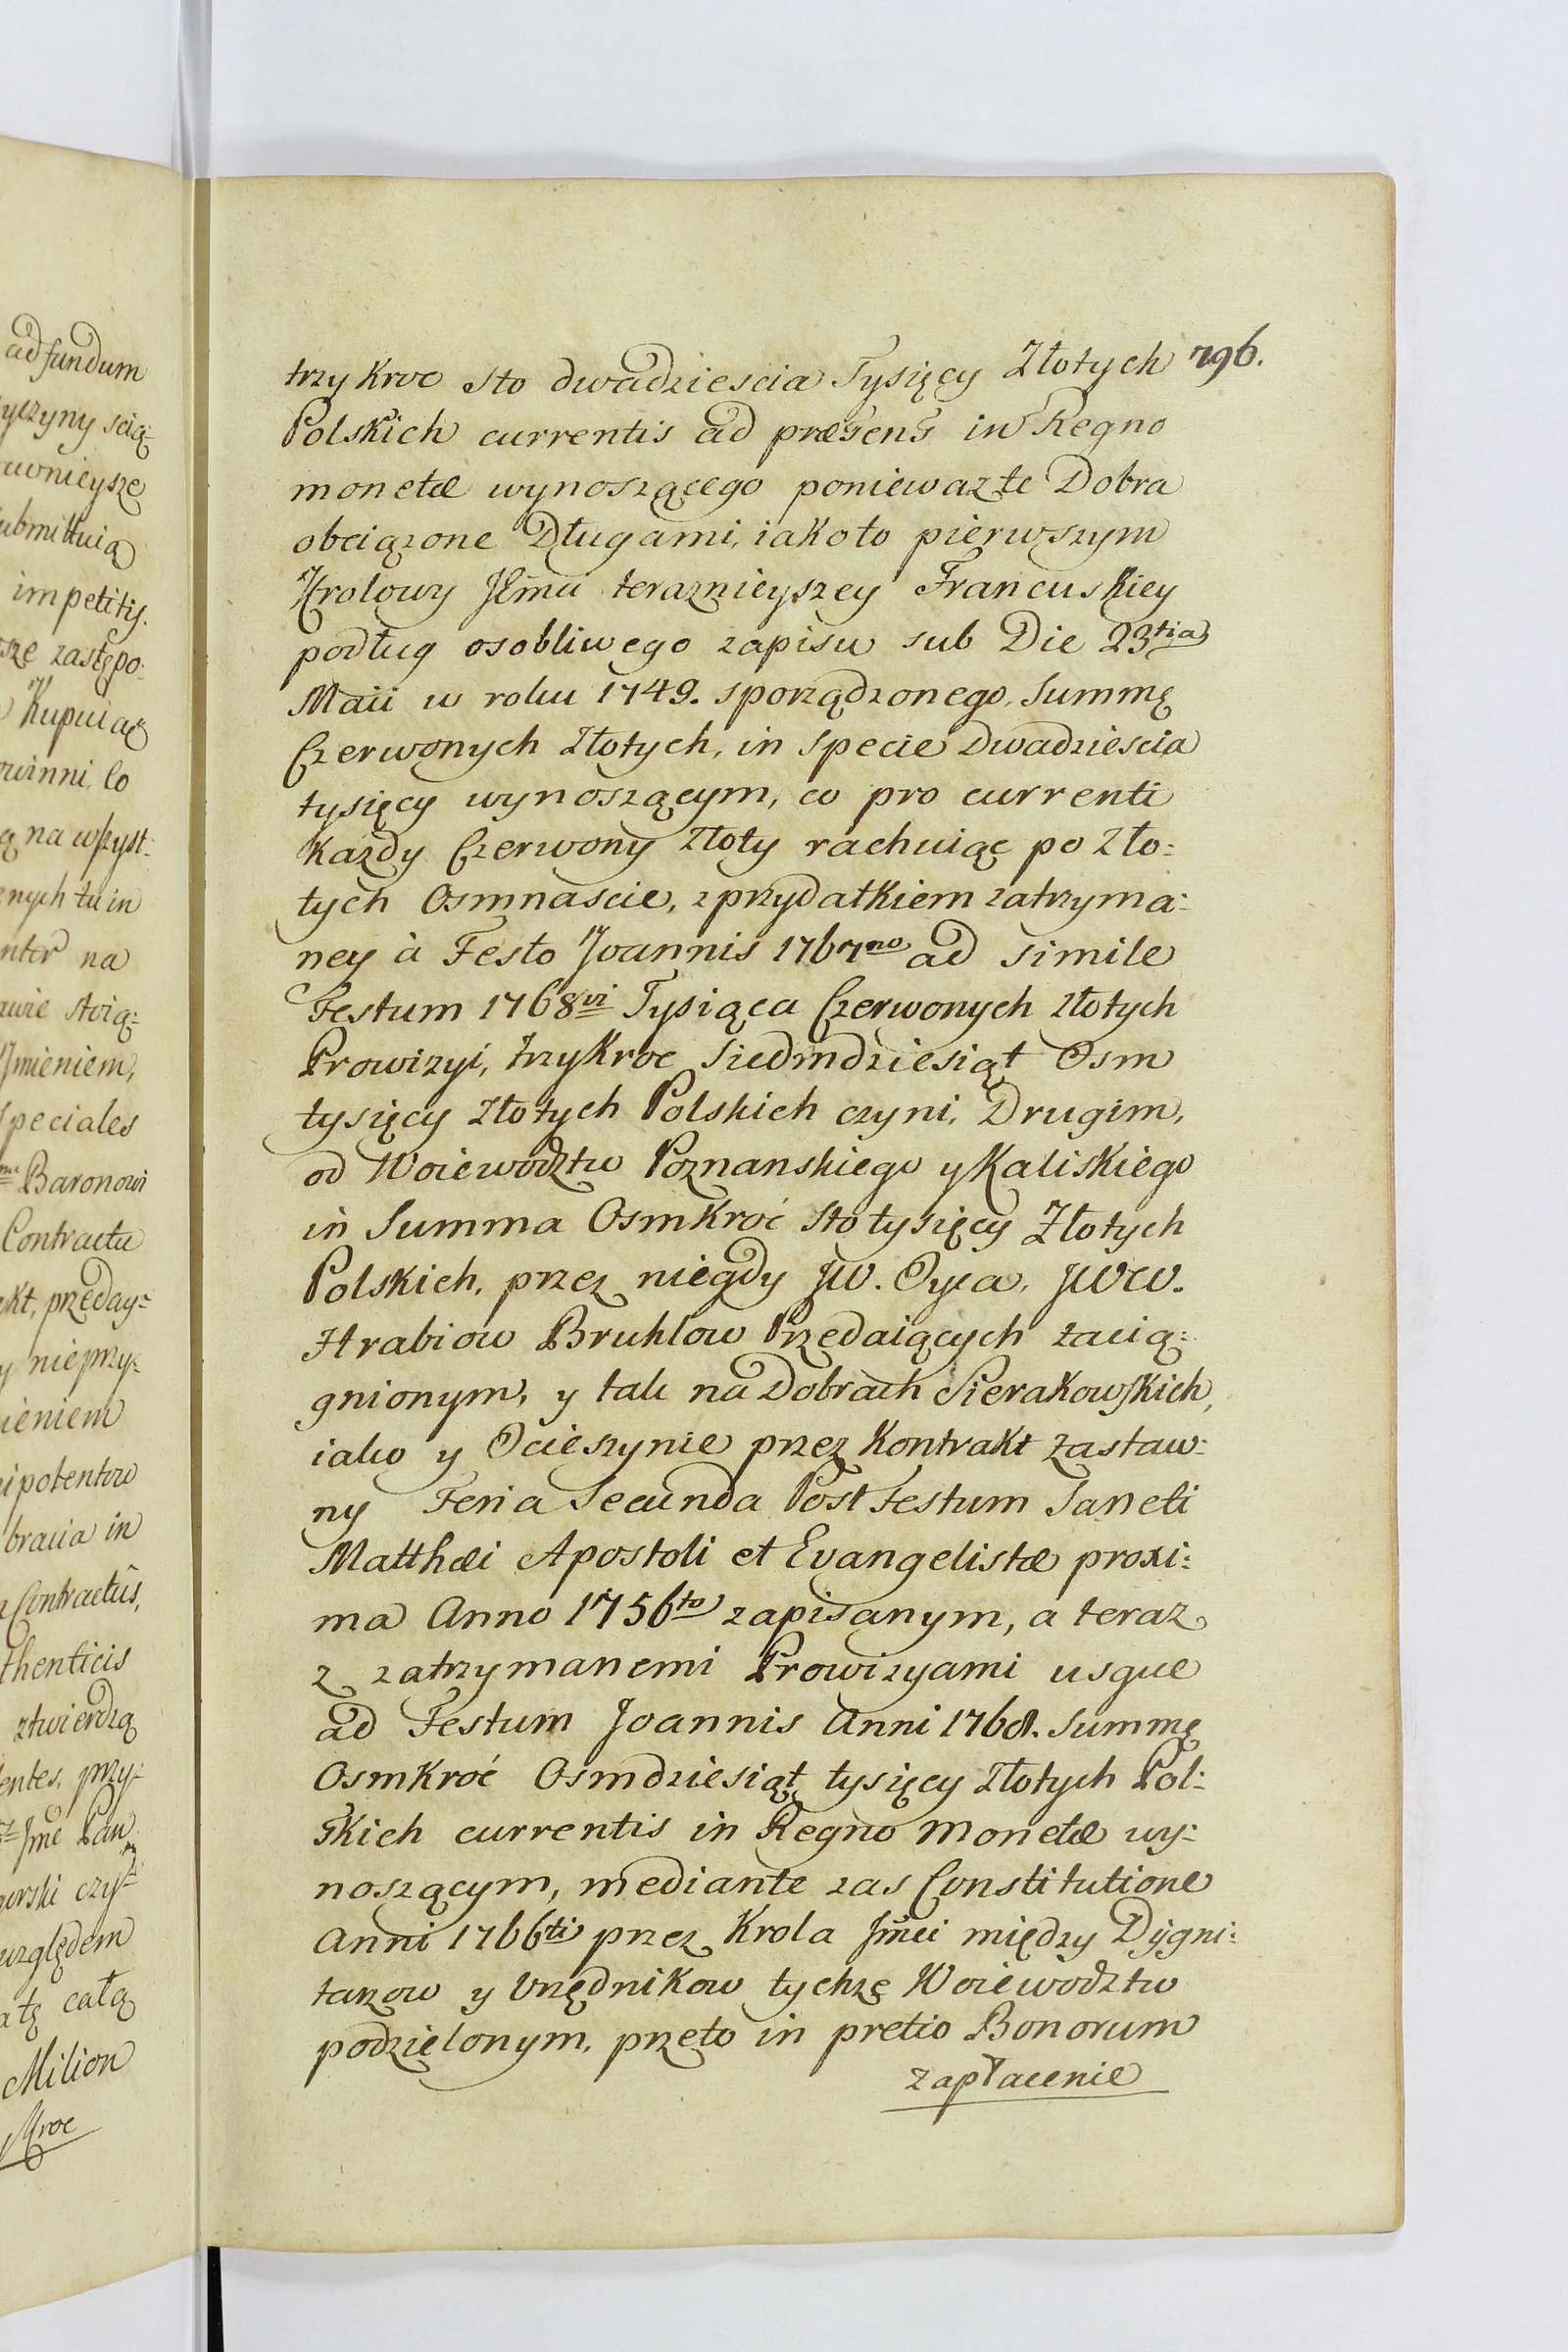 ad fundum
yczyny scią-
uwnieysze
ubmittuią
impetitij.
sze zastępo:
Kupuiąc
owinni, lo
ą na wszyst:
nych tu in
nter na
awie stoią:
Jmieniem,
speciales
Baronowi
Contractu
akt, przeday-
y nieprzy-
ieniem
ipotentow
bracia in
Contractûs,
thenticis
ztwierdzą
entes, przy-
Jme Pan
orski czy-
względem
atę całą
Milion
Kroc
796.
trzy Kroc sto dwadziescia Tysięcy Złotych
Polskich currentis ad præsens in Regno
monetæ wynoszącego poniewaz te Dobra
obciązone Długami, iako to pierwszym
Krolowy Jẽmu teraznieyszey Francuskiey
podług osobliwego zapisu sub Die 23tia
Maii w roku 1749. sporządzonego, Summę
Czerwonych Złotych, in specie Dwadziescia
tysięcy wynoszącym, co pro currenti
Kazdy Czerwony złoty rachuiąc po Zło:
tych Osmnascie, z przydatkiem zatrzyma:
ney à Festo Joannis 1767mo ad simile
Festum 1768vi Tysiąca Czerwonych złotych
Prowizyi, trzyKroc Siedmdziesiąt Osm
tysięcy złotych Polskich czyni, Drugim,
od Woiewodztw Poznanskiego y Kaliskiego
in Summa OsmKroć sto tysięcy Złotych
Polskich, przez niegdy JW. Oyca, JWW.
Hrabiow Bruhlow Przedaiących zacią:
gnionym, y tak na Dobrach Sierakowskich,
iako y Ocieszynie przez Kontrakt zastaw:
ny Feria Secunda Post Festum Sancti
Matthæi Apostoli et Evangelistæ proxi:
ma Anno 1756to zapisanym, a teraz
z zatrzymanemi Prowizyami usque
ad Festum Joannis Anni 1768. Summę
OsmKroć Osmdziesiąt tysięcy złotych Pol:
skich currentis in Regno Monetæ wy:
noszącym, mediante zas Constitutione
Anni 1766ti przez Krola Jmci między Dygni:
tarzow y Urzędnikow tychze Woiewodztw
podzielonym, przeto in pretio Bonorum
zapłacenie